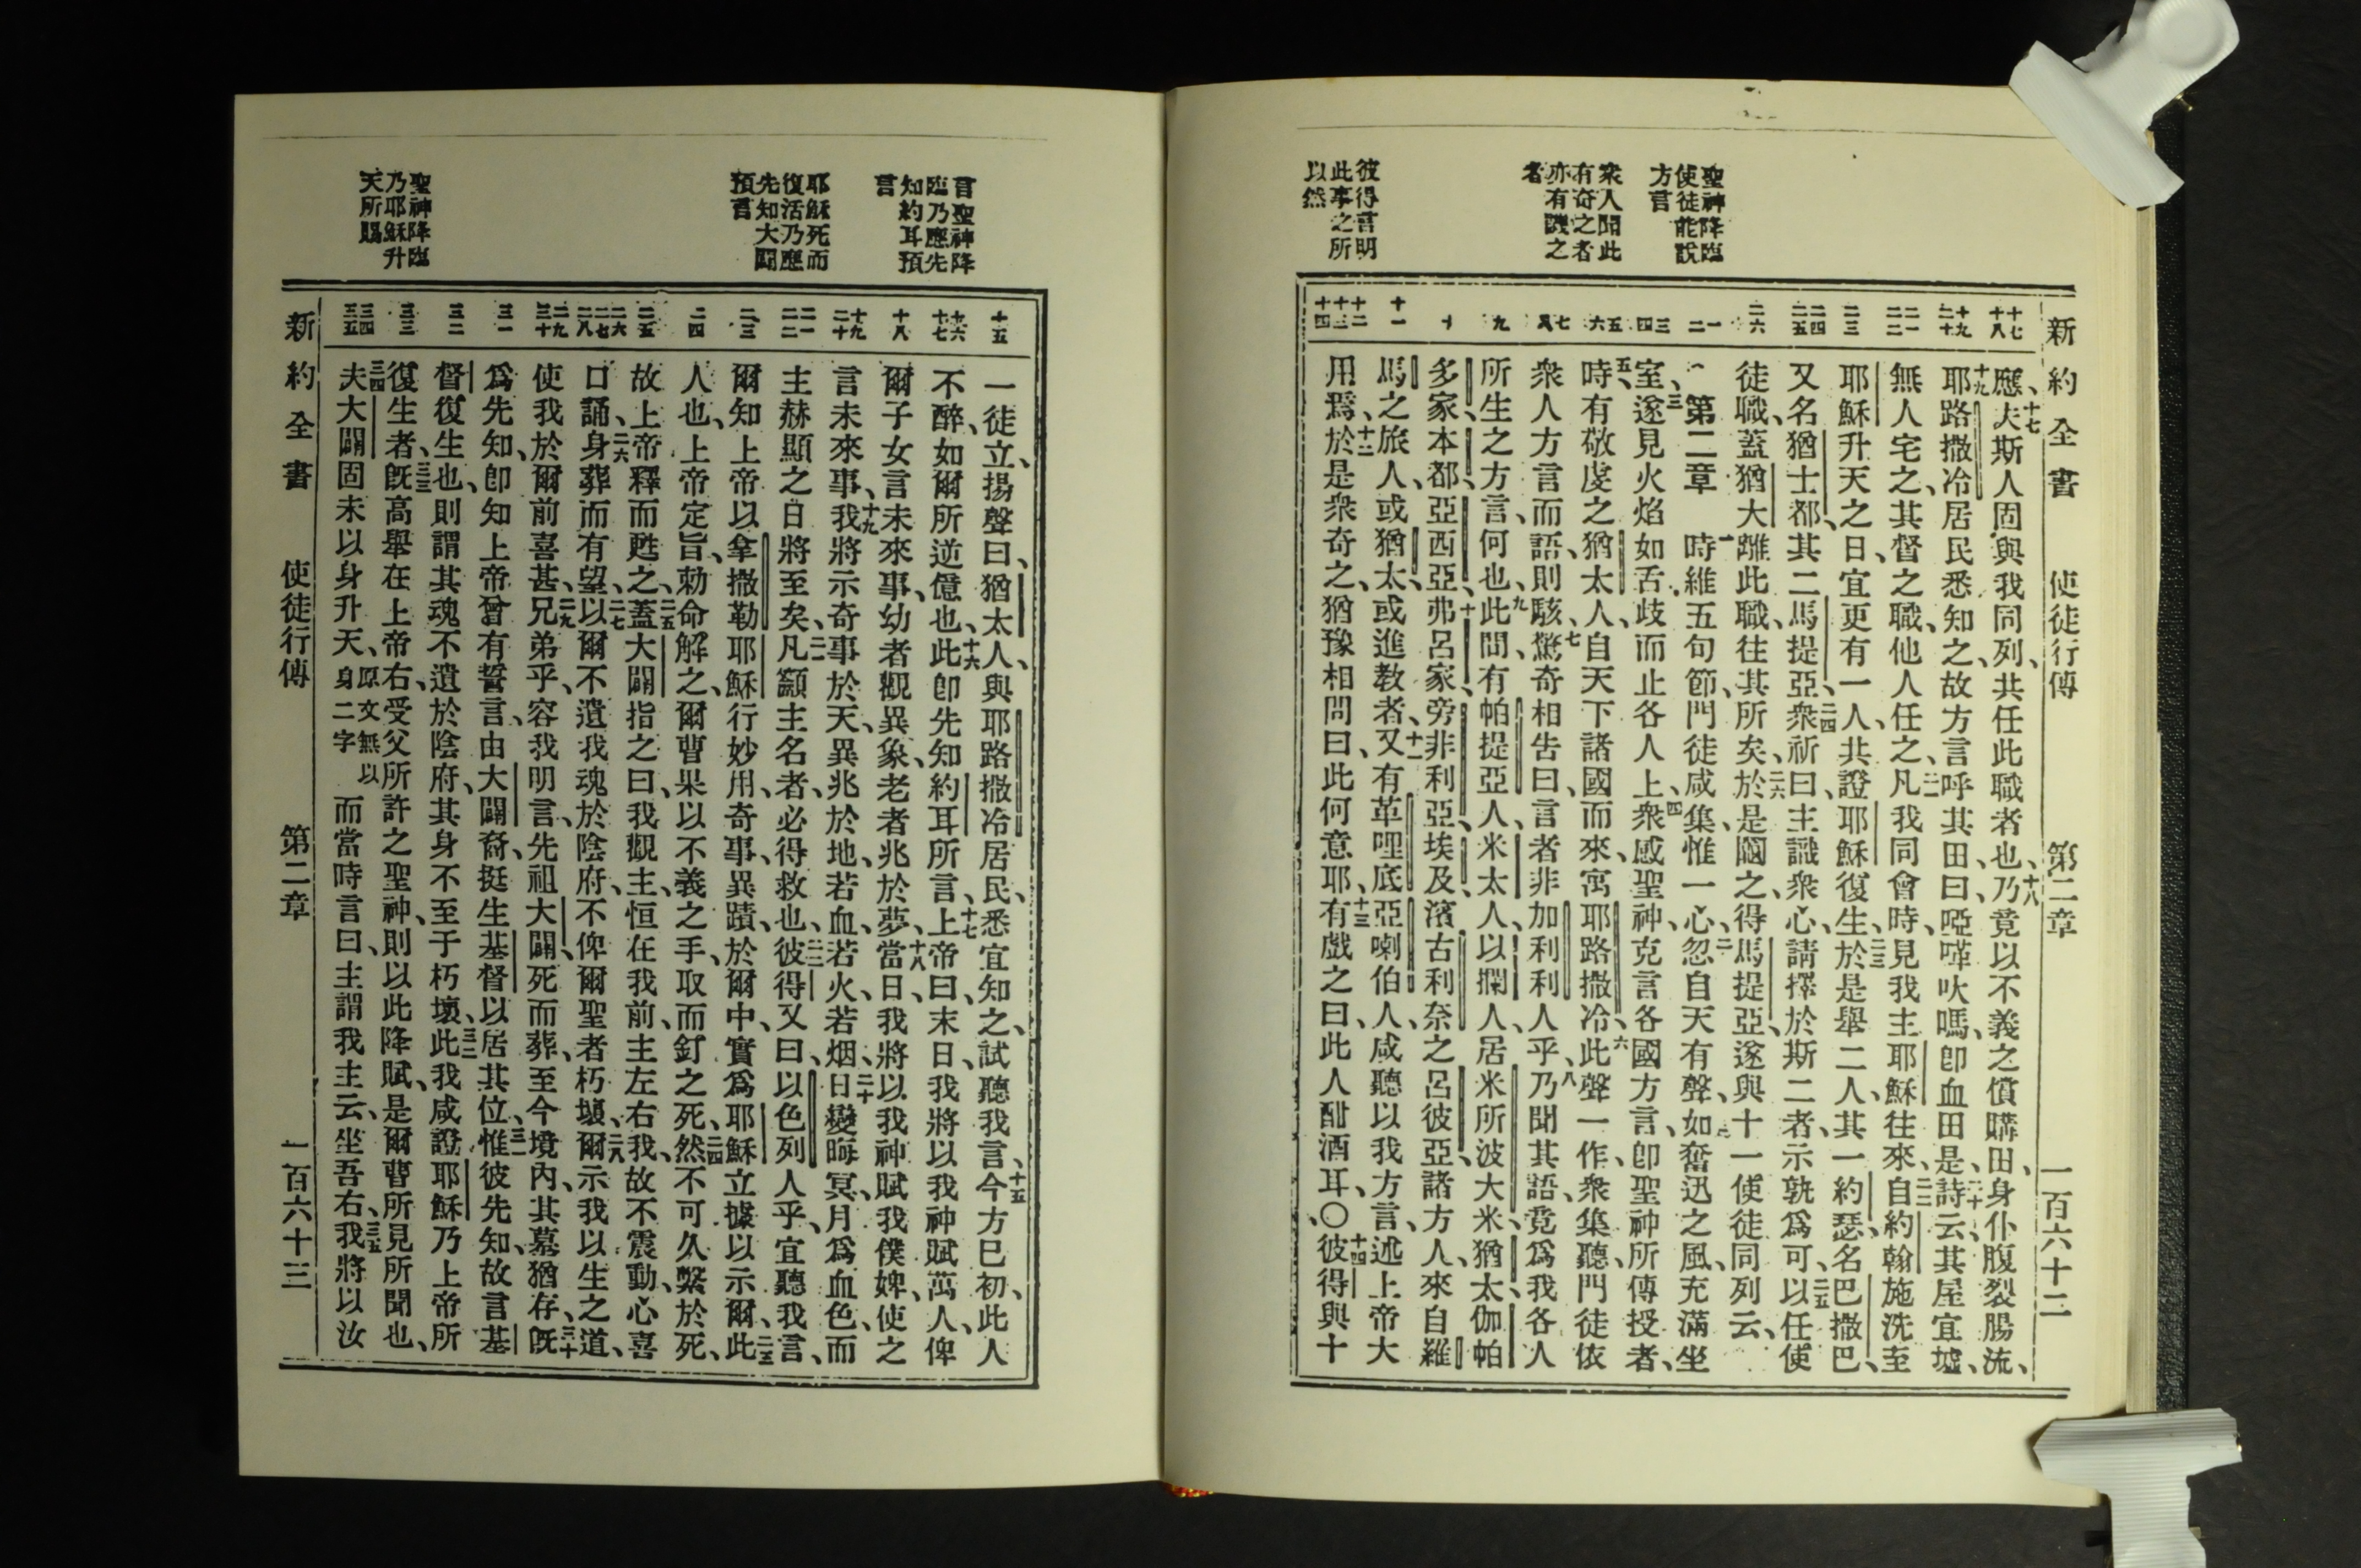 新約全書　使徒行傳　第二章　一百六十二
聖神降臨
使徒能說
方言
衆人聞此
有奇之者
亦有譏之
者
彼得言明
此事之所
以然
十七 十八
十九 二十
二一 二二
二三
二四 二五
二六
一 二
三 四
五 六
七 八
九
十
十一
十二 十三 十四
應、十七夫斯人固與我同列、共任此職者也、十八乃竟以不義之價購田、身仆腹裂腸流、
十九耶路撒冷居民悉知之、故方言呼其田、曰、啞㗌吠嗎、卽血田是、二十詩云、其屋宜墟、
無人宅之、其督之職、他人任之、二一凡我同會時、見我主耶穌往來、二二自約翰施洗至
耶穌升天之日、宜更有一人、共證耶穌復生、二三於是舉二人、其一約瑟名巴撒巴、
又名猶士都、其二馬提亞、二四衆祈曰、主識衆心、請擇於斯二者、示孰爲可、二五以任使
徒職、蓋猶大離此職、往其所矣、二六於是鬮之、得馬提亞、遂與十一使徒同列云、
第二章　一時維五旬節、門徒咸集、惟一心、二忽自天有聲、如奮迅之風、充滿坐
室、三遂見火焰如舌歧而止各人上、四衆感聖神、克言各國方言、卽聖神所傳授者、
五時有敬虔之猶太人、自天下諸國而來、寓耶路撒冷、六此聲一作、衆集聽、門徒依
衆人方言而語、則駭、七驚奇相告曰、言者非加利利人乎、八乃聞其語、竟爲我各人
所生之方言、何也、九此間有帕提亞人、米太人、以攔人、居米所波大米、猶太、伽帕
多家、本都、亞西亞、十弗呂家、旁非利亞、埃及、濱古利奈之呂彼亞、諸方人、來自羅
馬之旅人、或猶太、或進教者、十一又有革哩底、亞喇伯人、咸聽以我方言、述上帝大
用焉、十二於是衆奇之、猶豫相問曰、此何意耶、十三有戲之曰、此人酣酒耳、〇十四彼得與十
言聖神降
臨乃應先
知約耳預
言
耶穌死而
復活乃應
先知大闢
預言
聖神降臨
乃耶穌升
天所賜
十五
十六 十七
十八
十九 二十
二一 二二
二三
二四
二五
二六 二七 二八
二九 三十
三一
三二
三三
三四 三五
一徒立、揚聲曰、猶太人、與耶路撒冷居民、悉宜知之、試聽我言、十五今方巳初、此人
不醉、如爾所逆億也、十六此卽先知約耳所言、十七上帝曰、末日、我將以我神賦萬人、俾
爾子女言未來事、幼者觀異象、老者兆於夢、十八當日、我將以我神賦我僕婢、使之
言未來事、十九我將示奇事於天、異兆於地、若血、若火、若烟、二十日變晦冥、月爲血色、而
主赫顯之日將至矣、二一凡籲主名者、必得救也、二二彼得又曰、以色列人乎、宜聽我言、
爾知上帝以拿撒勒耶穌行妙用、奇事、異蹟、於爾中、實爲耶穌立據以示爾、二三此
人也、上帝定旨、勅命解之、爾曹果以不義之手、取而釘之死、二四然不可久繫於死、
故上帝釋而甦之、二五蓋大闢指之曰、我觀主、恒在我前、主左右我、故不震動、二六心喜
口誦、身葬而有望、二七以爾不遺我魂於陰府、不俾爾聖者朽壞、二八爾示我以生之道、
使我於爾前喜甚、二九兄弟乎、容我明言、先祖大闢、死而葬、至今境內、其墓猶存、三十旣
爲先知、卽知上帝曾有誓言、由大闢裔、挺生基督以居其位、三一惟彼先知、故言基
督復生也、則謂其魂不遺於陰府、其身不至于朽壞、三二此我咸證、耶穌乃上帝所
復生者、三三旣高舉在上帝右、受父所許之聖神、則以此降賦、是爾曹所見所聞也、
三四夫大闢固未以身升天、原文無以身二字而當時言曰、主謂我主云、坐吾右、三五我將以汝
新約全書　使徒行傳　第二章　一百六十三